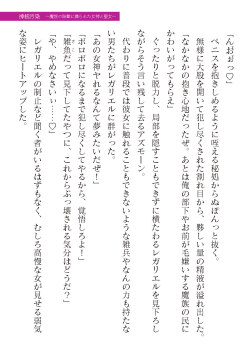 神核汚染
「んおぉっ♡」
ペニスを抱きしめるように咥える秘処からぬぽんっと抜く。
無様に大股を開いて犯し尽くされた割れ目から、夥しい量の精液が溢れ出した。
「なかなかの抱き心地だったぜ。あとは俺の部下やお前が毛嫌いする魔族の民に
かわいがってもらえ」
ぐったりと脱力し、局部を隠すこともできずに横たわるレガリエルを見下ろし
ながらそう言い残して去るアズモーン。
代わりに普段では彼女に触れることもできないような雑兵やなんの力も持たな
い男たちがレガリエルに群がった。
「あの女神ヤれるなんて夢みたいだぜ！」
「ボロボロになるまで犯し尽くしてやるから、覚悟しろよ！」
「雑魚だって見下してたやつに、これからぶっ壊される気分はどうだ？」
「や、やめなさいぃ……♡」
レガリエルの制止など聞く者がいるはずもなく、むしろ高慢な女が見せる弱気
な姿にヒートアップした。